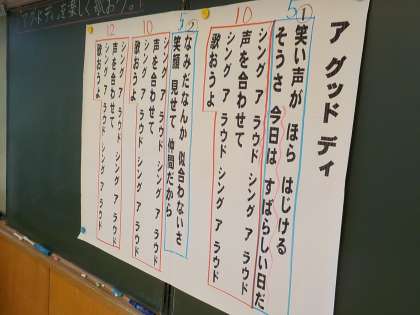 ア グッド ディ
5
①笑い声が ほら はじける
そうさ 今日は すばらしい日だ
10
シング ア ラウド シング ア ラウド
声を合わせて
シング ア ラウド シング ア ラウド
歌おうよ
5
②なみだなんか 似合わないさ
笑顔 見せて 仲間だから
10
シング ア ラウド シング ア ラウド
声を合わせて
シング ア ラウド シング ア ラウド
歌おうよ
12
シング ア ラウド シング ア ラウド
声を合わせて
シング ア ラウド シング ア ラウド
歌おうよ